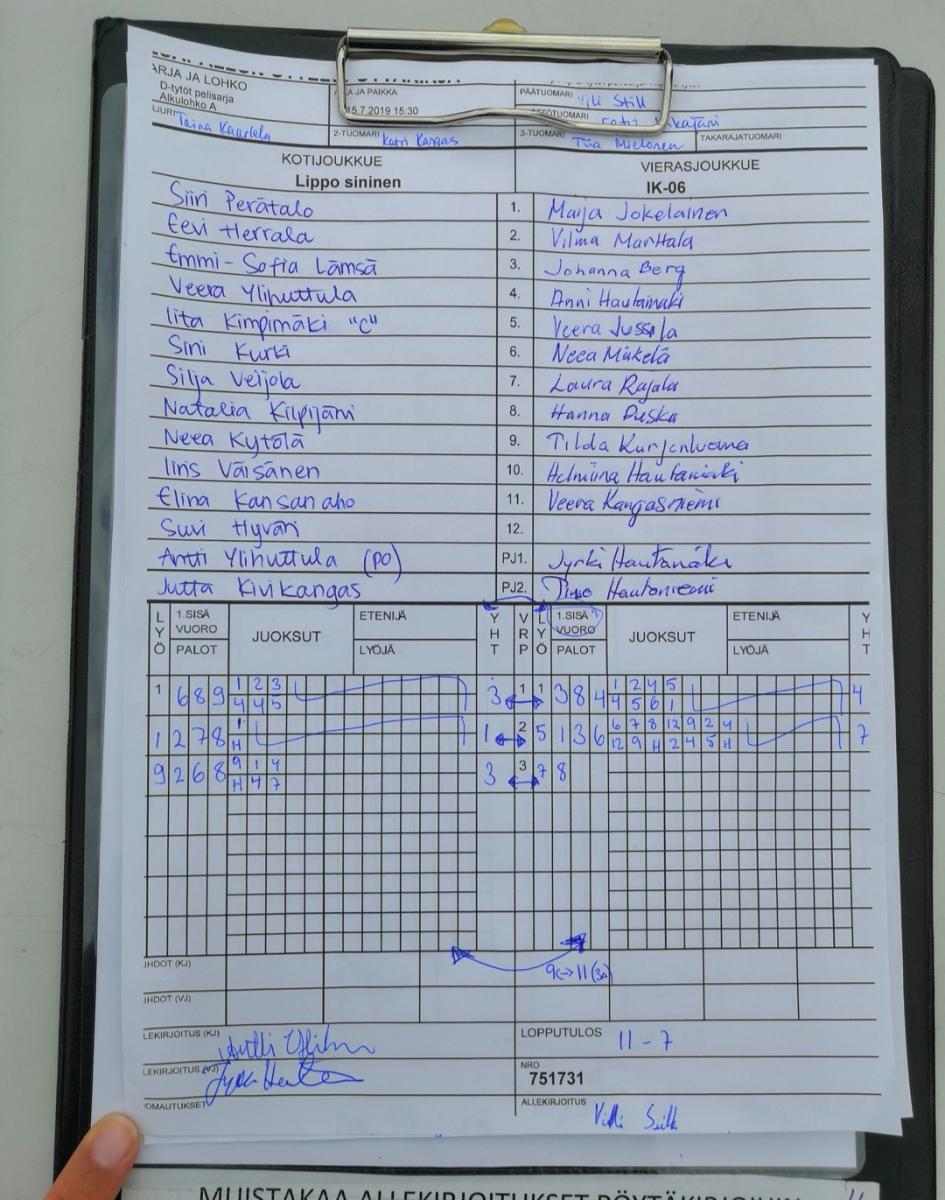 ARJA JA LOHKO
D-tytöt pelisarja
Alkulohko A
KA JA PAIKKA
15.7.2019 15:30
PÄÄTUOMARI Vili Still
RJURI Taina Kaartela
2-TUOMARI Katri Kangas
3-TUOMARI Tiia Mielonen
TAKARAJATUOMARI
KOTIJOUKKUE
VIERASJOUKKUE
Lippo sininen
IK-06
Siiri Perätalo 1. Maija Jokelainen
Eevi Herrala 2. Vilma Marttala
Emmi-Sofia Lämsä 3. Johanna Berg
Veera Ylihuttula 4. Anni Hautamäki
Iita Kimpimäki "C" 5. Veera Jussila
Sini Kurki 6. Neea Mäkelä
Silja Veijola 7. Laura Rajala
Natalia Kilpijärvi 8. Hanna Puska
Neea Kytölä 9. Tilda Kurjenluoma
Iiris Väisänen 10. Helmiina Hautamäki
Elina Kansanaho 11. Veera Kangasniemi
Suvi Hyväri 12.
Antti Ylihuttula (PO) PJ1. Jyrki Hautamäki
Jutta Kivikangas PJ2. Timo Hautaniemi
LYÖ 1.SISÄ VUORO PALOT JUOKSUT ETENIJÄ LYÖJÄ YHT VRP LYÖ 1.SISÄ VUORO PALOT JUOKSUT ETENIJÄ LYÖJÄ YHT
1 6 8 9 1 2 3 3 1 1 3 8 4 1 2 4 5 4
4 4 5 4 5 6 1
1 2 7 8 1 1 2 5 1 3 6 6 7 8 12 9 2 4 7
H 12 9 H 2 4 5 H
9 2 6 8 9 1 4 3 3 7 8
H 4 7
IHDOT (KJ)
9<->11 (3A)
IHDOT (VJ)
LEKIRJOITUS (KJ)
LOPPUTULOS 11 - 7
LEKIRJOITUS (VJ)
NRO
751731
OMAUTUKSET
ALLEKIRJOITUS Villi Still
MUISTAKAA ALLEKIRJOITUKSET PÖYTÄKIRJOIHIN